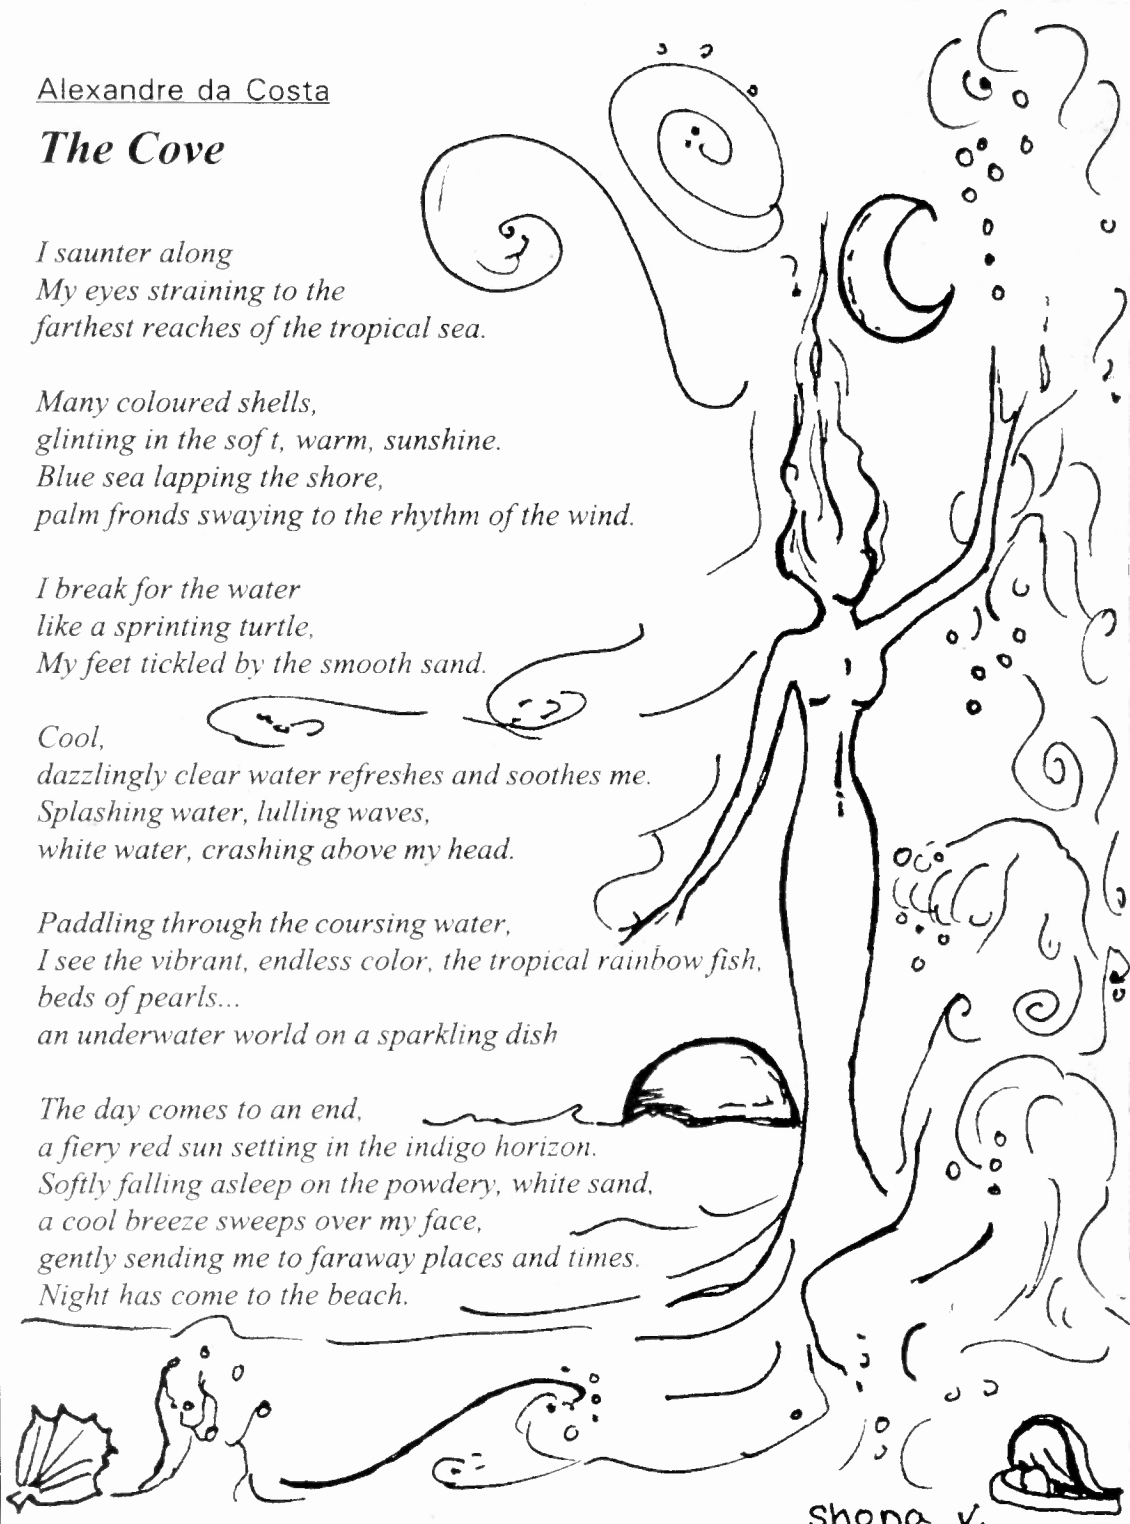 Alexandre da Costa
The Cove
I saunter along
My eyes straining to the
farthest reaches of the tropical sea.
Many coloured shells,
glinting in the soft, warm, sunshine.
Blue sea lapping the shore,
palm fronds swaying to the rhythm of the wind.
I break for the water
like a sprinting turtle,
My feet tickled by the smooth sand.
Cool,
dazzlingly clear water refreshes and soothes me.
Splashing water, lulling waves,
white water, crashing above my head.
Paddling through the coursing water,
I see the vibrant, endless color, the tropical rainbow fish,
beds of pearls...
an underwater world on a sparkling dish
The day comes to an end,
a fiery red sun setting in the indigo horizon.
Softly falling asleep on the powdery, white sand,
a cool breeze sweeps over my face,
gently sending me to faraway places and times.
Night has come to the beach.
Shona V.